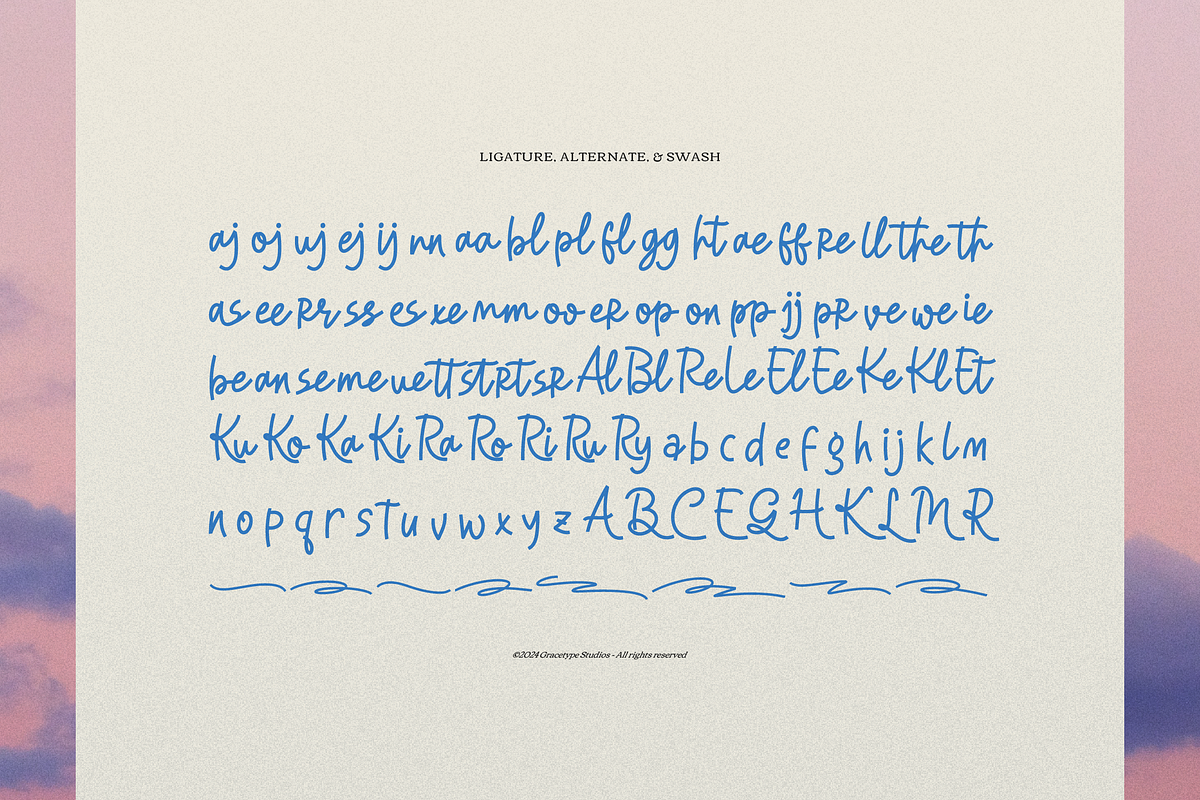 LIGATURE, ALTERNATE, & SWASH
aj oj uj ej ij nn aa bl pl fl gg ht ae ff Re ll the th
as ee RR ss es xe mm oo eR op on pp jj pR ve we ie
be an se me ue tt st Rt sR Al Bl Re Le El Ee Ke Kl Et
Ku Ko Ka Ki Ra Ro Ri Ru Ry a b c d e f g h i j k l m
n o p q r s t u v w x y z A B C E G H K L M R
©2024 Gracetype Studios - All rights reserved